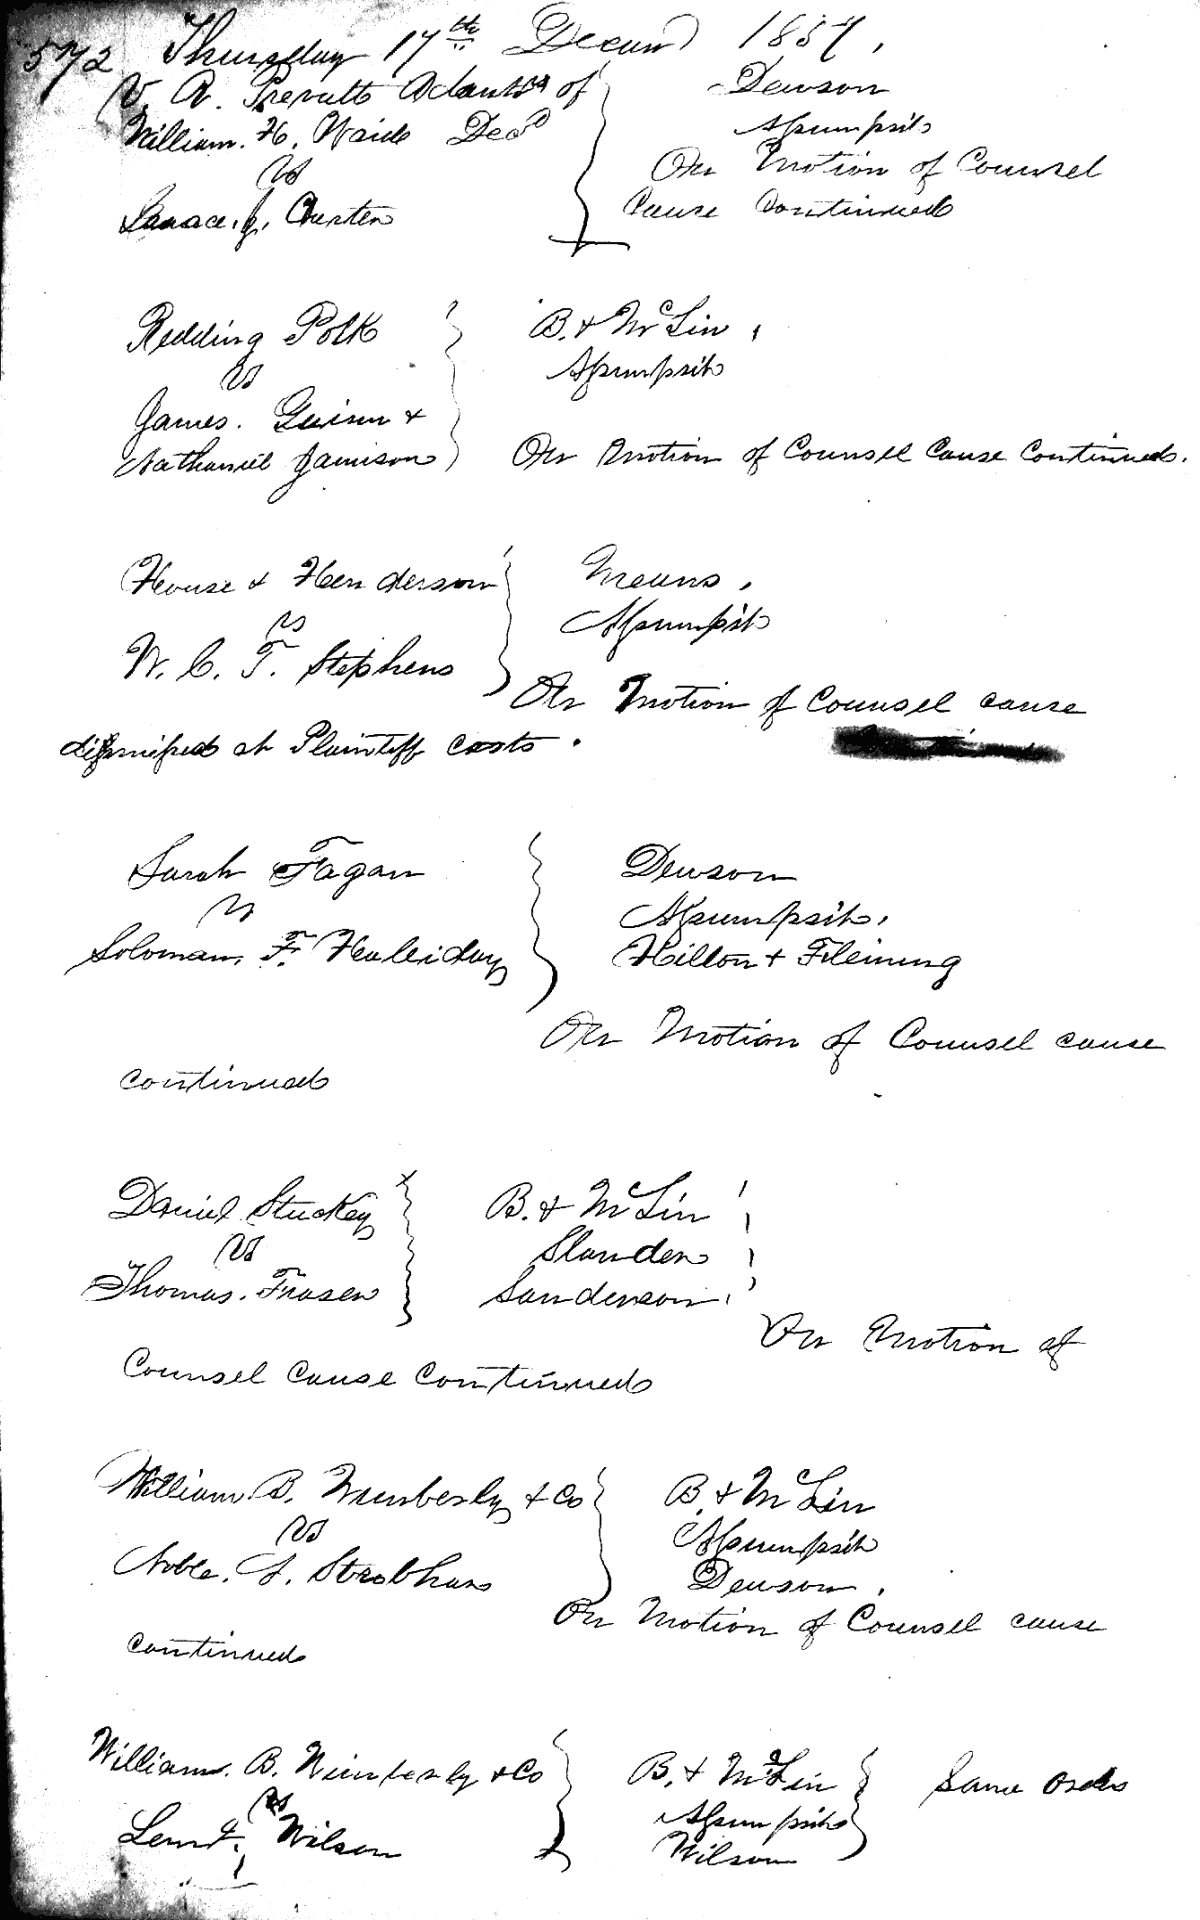 572 Thursday 17th Decem 1857,
V. A. Prevatt Admtr of
William. H. Waide Decd
vs
Isaace. J. Curten
Dewson
Assumpsit
On Motion of Counsel
Cause Continued
Redding Polk
vs
James. Guison &
Nathaniel Jamison
B. & McLin,
Assumpsit
On Motion of Counsel Cause Continued.
House & Henderson
vs
W. C. T. Stephens
Means,
Assumpsit
On Motion of Counsel cause
dissmissed at Plaintiff costs.
Sarah Fagan
vs
Soloman. F. Halliday
Dewson
Assumpsit,
Hilton & Fleming
On Motion of Counsel cause
continued
Daniel Stuckey
vs
Thomas. Fraser
B. & McLin
Slander
Sanderson.
On Motion of
Counsel cause continued
William. B. Wimberly & Co
vs
Noble. A. Strobhar
B. & McLin
Assumpsit
Dewson.
On Motion of Counsel cause
continued
William. B. Wimberly & Co
vs
Wilson
B. & McLin
Assumpsit
Wilson
Same order